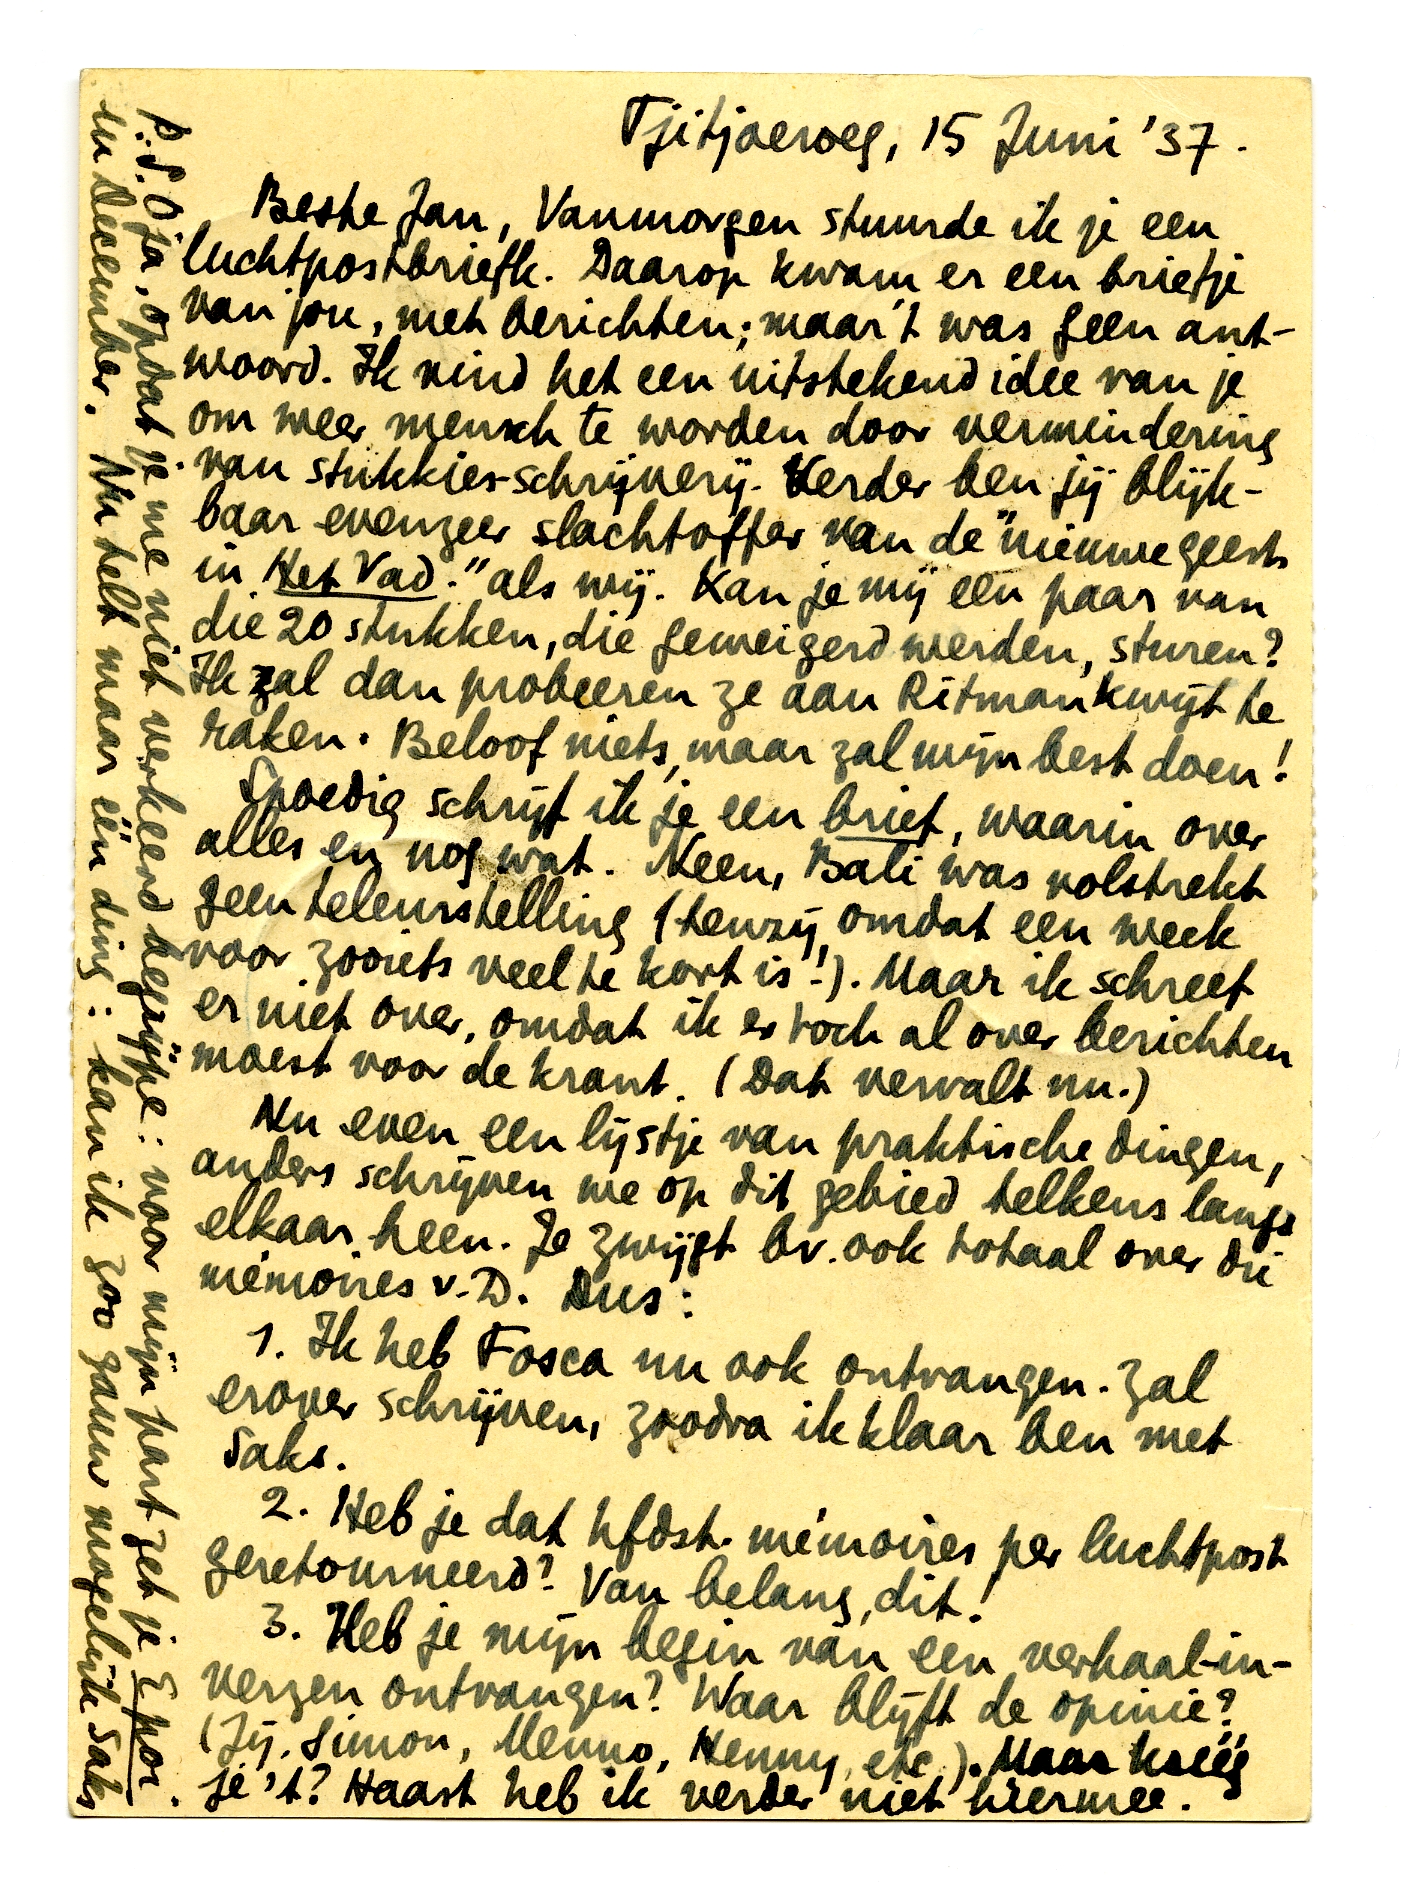 Tjitjoeroeg, 15 Juni '37.
Beste Jan, Vanmorgen stuurde ik je een
luchtpostbriefk. Daarop kwam er een briefje
van jou, met berichten; maar 't was geen ant-
woord. Ik vind het een uitstekend idee van je
om weer mensch te worden door vermindering
van stukkies-schrijverij. Verder ben jij blijk-
baar evenzeer slachtoffer van de "nieuwe geest
in Het Vad." als wij. Kan je mij een paar van
die 20 stukken, die geweigerd werden, sturen?
Ik zal dan probeeren ze aan Ritman kwijt te
raken. Beloof niets, maar zal mijn best doen!
Spoedig schrijf ik je een brief, waarin over
alles en nog wat. Neen, Bali was volstrekt
geen teleurstelling (tenzij, omdat een week
voor zooiets veel te kort is!). Maar ik schreef
er niet over, omdat ik er toch al over berichten
moest voor de krant. (Dat vervalt nu.)
Nu even een lijstje van praktische dingen,
anders schrijven we op dit gebied telkens langs
elkaar heen. Je zwijgt bv. ook totaal over die
mémoires v. D. Dus:
1. Ik heb Fosca nu ook ontvangen. Zal
erover schrijven, zoodra ik klaar ben met
Saks.
2. Heb je dat hfdst. mémoires per luchtpost
geretourneerd? Van belang, dit!
3. Heb je mijn begin van een verhaal-in-
verzen ontvangen? Waar blijft de opinie?
(Jij, Simon, Menno, Henny, etc.). Maar kreeg
je 't? Haast heb ik verder niet hiermee.
P.S. O ja, opdat je me niet verkeerd begrijpe: voor mijn part zet je E por.
in December. Nu telt maar één ding: kan ik zoo gauw mogelijk Saks